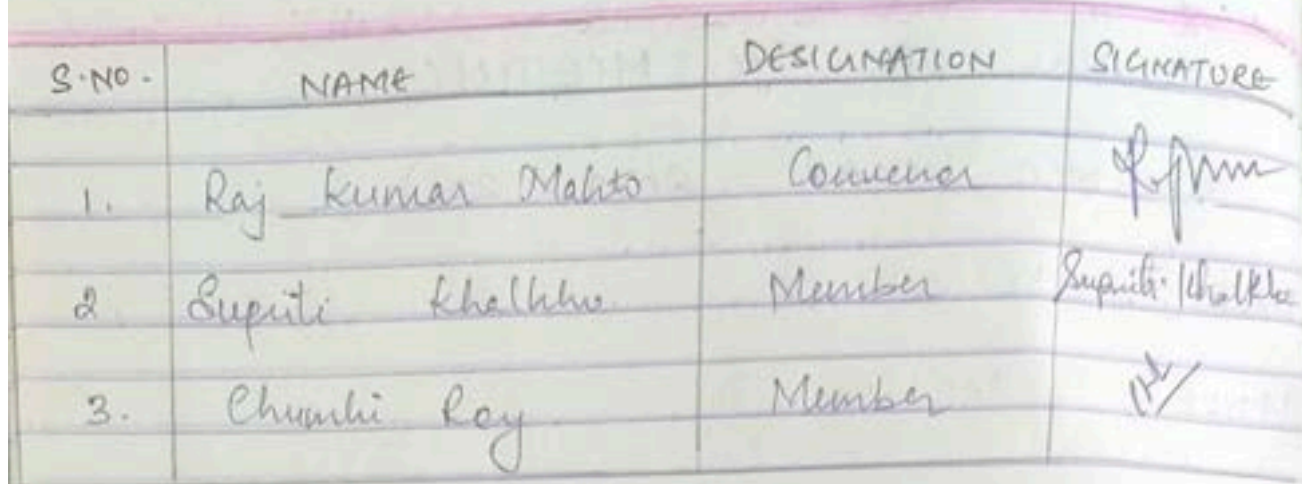 S.NO. NAME DESIGNATION SIGNATURE
1. Raj Kumar Mahto Convenor
2 Supriti Khalkho Member Supriti Khalkho
3. Chumki Roy Member